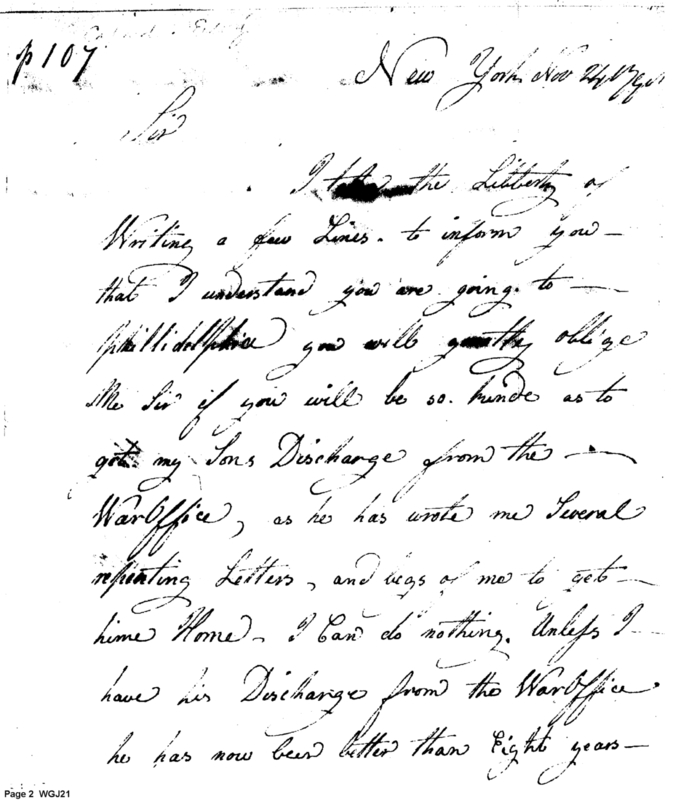 p 107
New York Nov 24
Sir
I take the Libberty of
Writing a few Lines. to inform you —
that I understand you are going. to —
Phillidelphia you will greatly oblige
Me Sir if you will be so. kinde as to
get my Sons Discharge from the —
WarOffice, as he has wrote me Several
repenting Letters, and begs of me to get —
hime Home — I Can do nothing. Unless I —
have his Discharge from the WarOffice
he has now been better than Eight years —
Page 2 WGJ21